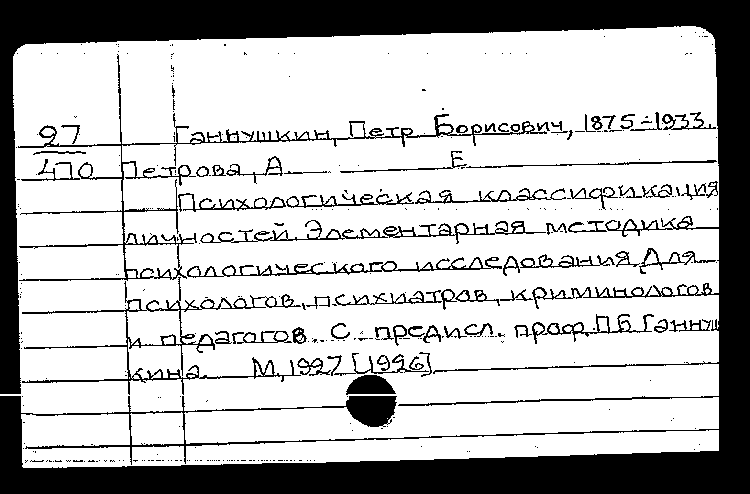 97 Ганнушкин, Петр Борисович, 1875-1933.
470 Петрова, А. Е
Психологическая классификация
личностей. Элементарная методика
психологического исследования. Для
психологов, психиатров, криминологов
и педагогов. С предисл. проф. П.Б Ганнуш
кина. М, 1927 [1926]